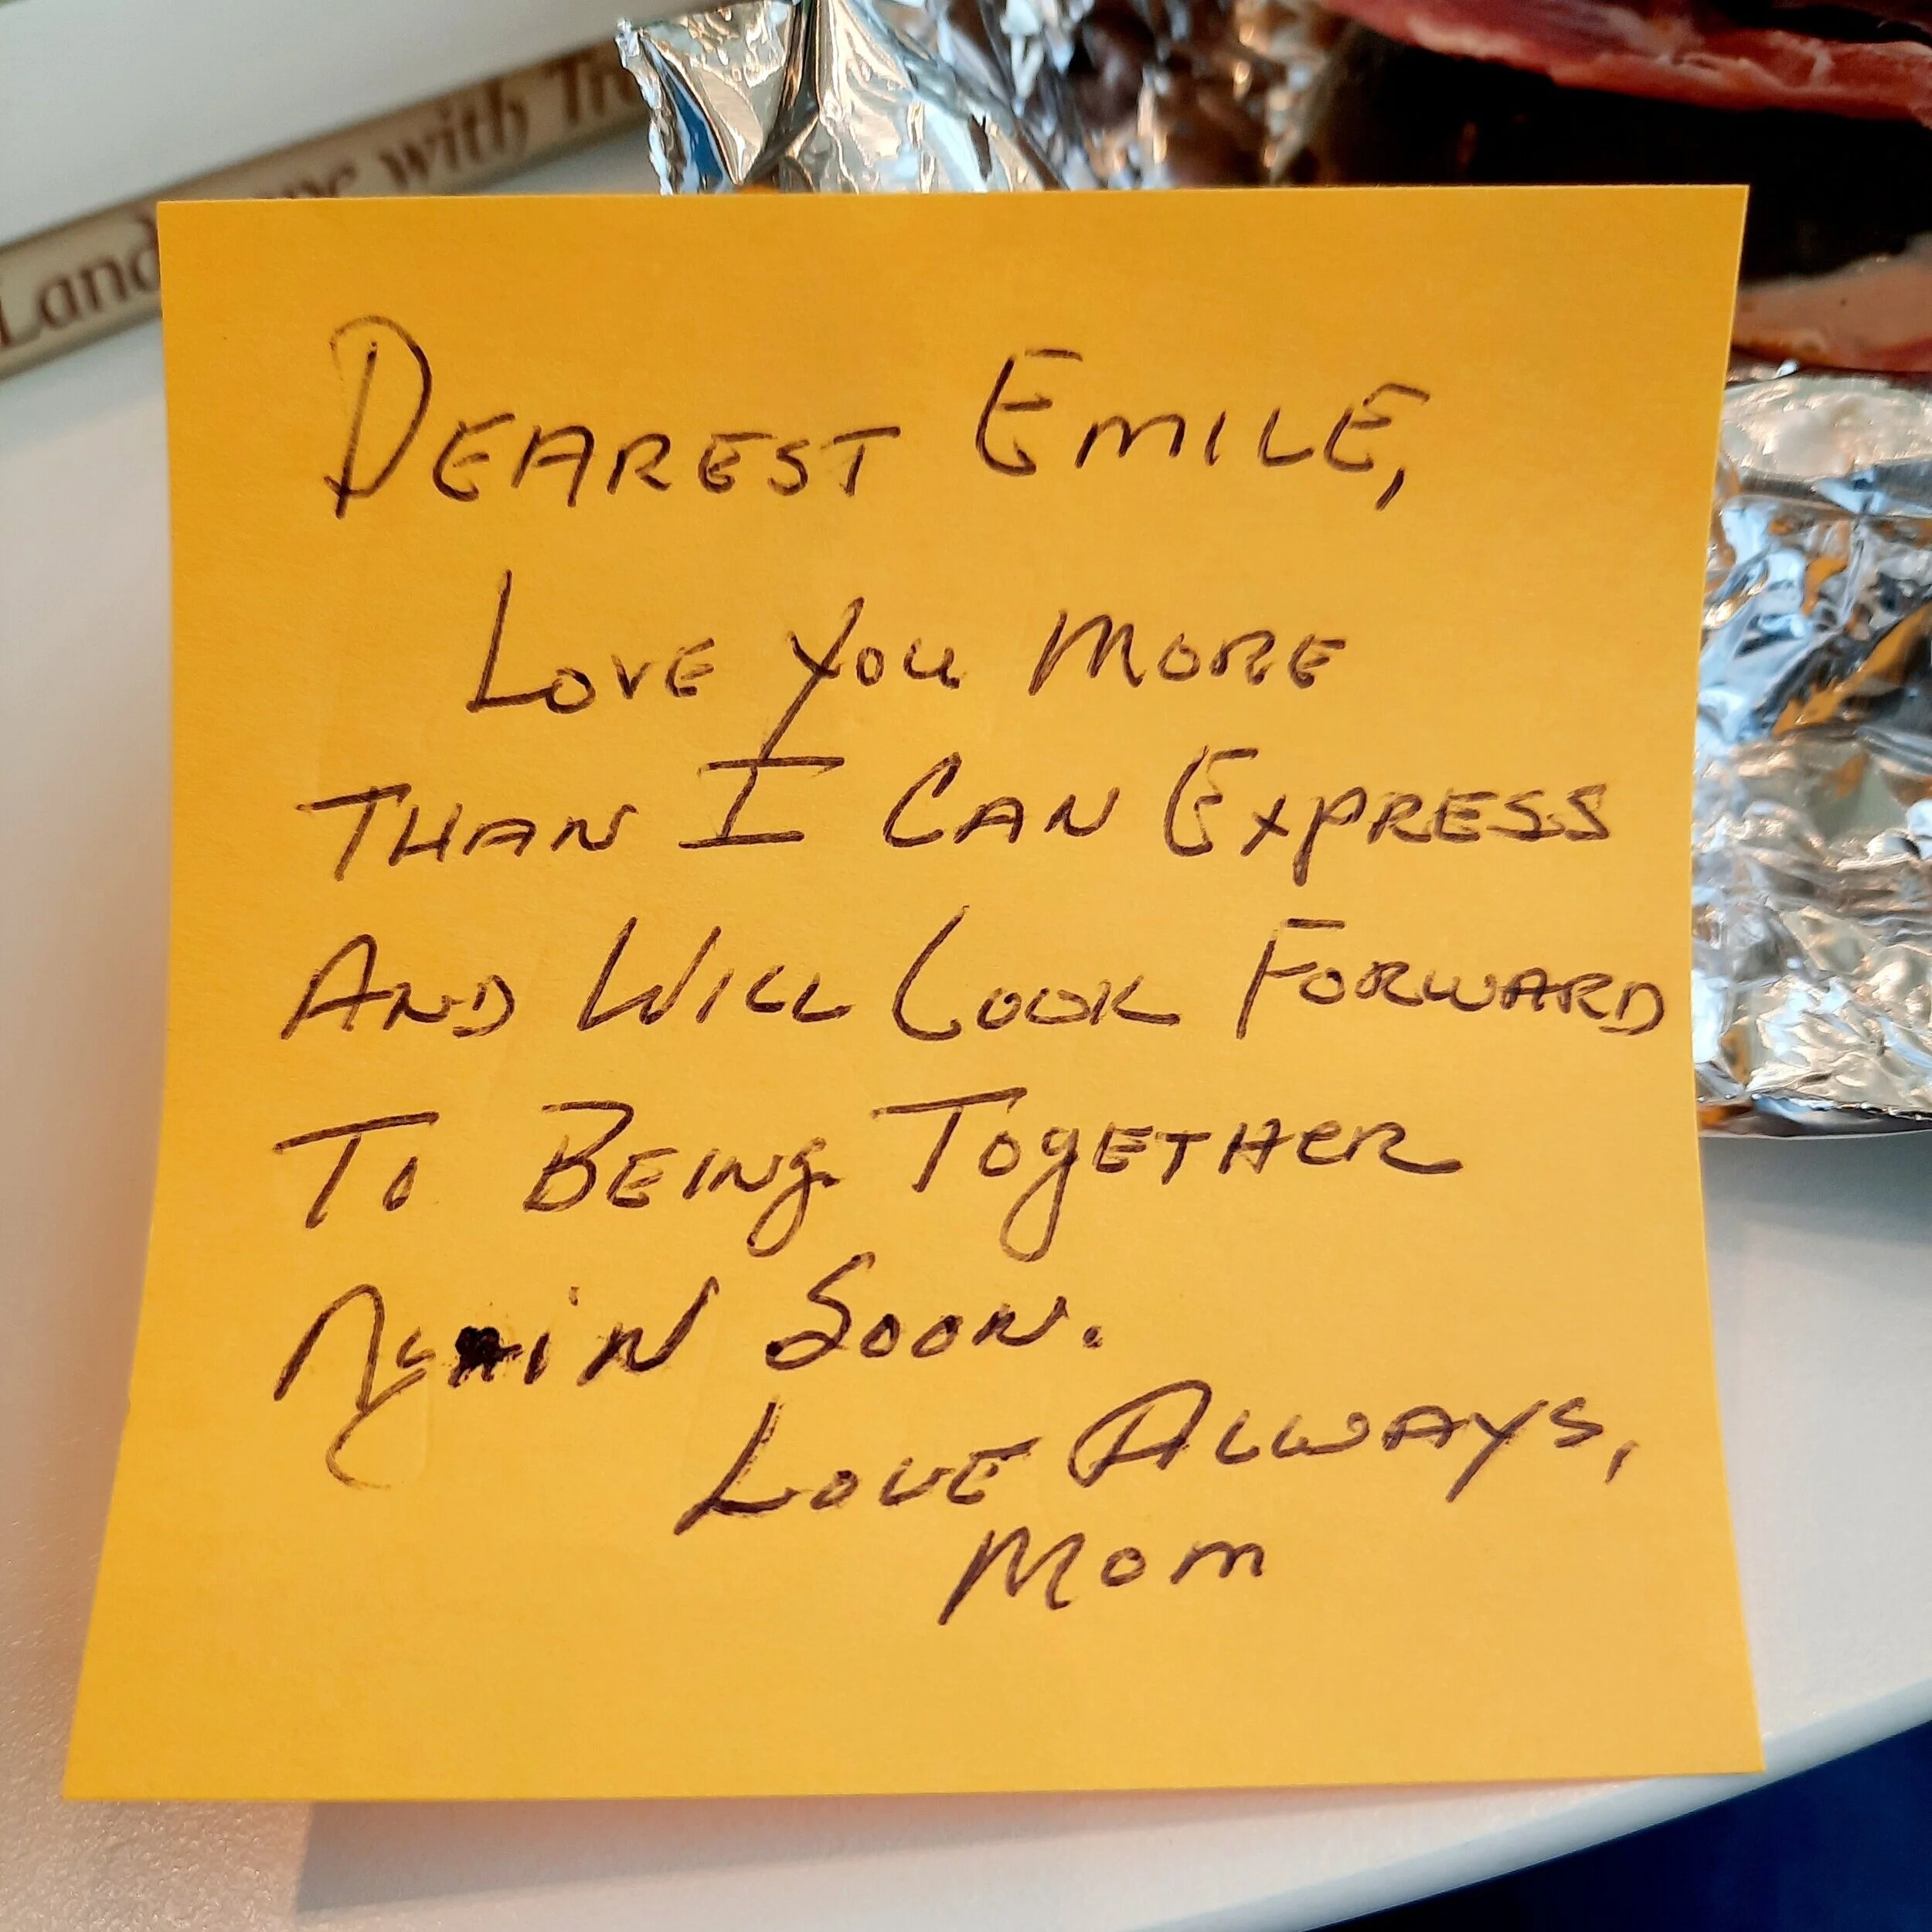 Landscape with Tre
DEAREST EMILE,
LOVE YOU MORE
THAN I CAN EXPRESS
AND WILL LOOK FORWARD
TO BEING TOGETHER
AGAIN SOON.
LOVE ALWAYS,
MOM